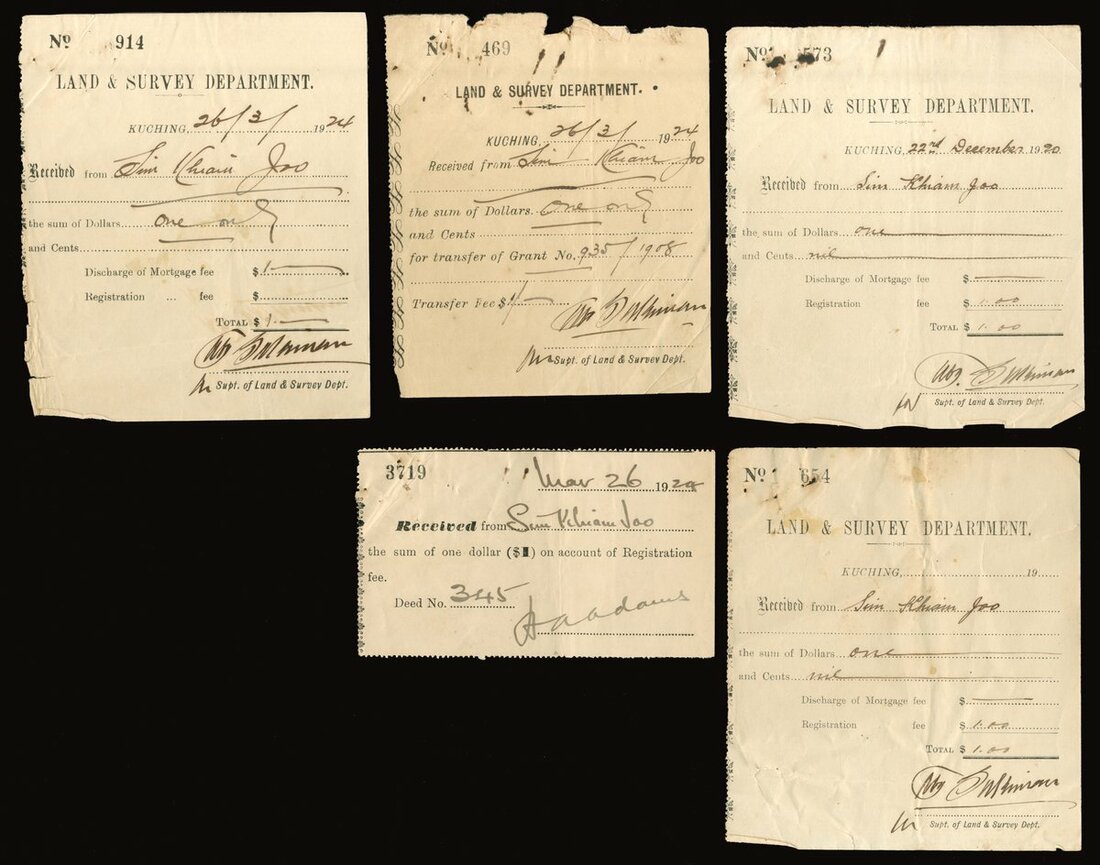 No 914
LAND & SURVEY DEPARTMENT.
KUCHING, 26/3/ 1924
Received from Sim Khiam Joo
the sum of Dollars one only
and Cents
Discharge of Mortgage fee $1
Registration ... fee $
TOTAL $1
Supt. of Land & Survey Dept.
No 469
LAND & SURVEY DEPARTMENT.
KUCHING, 26/3/ 1924
Received from Sim Khiam Joo
the sum of Dollars one only
and Cents
for transfer of Grant No. 935/1908
Transfer Fee $1
Supt. of Land & Survey Dept.
No 573
LAND & SURVEY DEPARTMENT.
KUCHING 22nd December 1920
Received from Sim Khiam Joo
the sum of Dollars one
and Cents nil
Discharge of Mortgage fee $
Registration fee $ 1.00
TOTAL $ 1.00
Supt. of Land & Survey Dept.
3719
Mar 26 1924
Received from Sim Khiam Joo
the sum of one dollar ($1) on account of Registration
fee.
Deed No. 345
No 654
LAND & SURVEY DEPARTMENT.
KUCHING, 19
Received from Sim Khiam Joo
the sum of Dollars one
and Cents nil
Discharge of Mortgage fee $
Registration fee $ 1.00
TOTAL $ 1.00
Supt. of Land & Survey Dept.